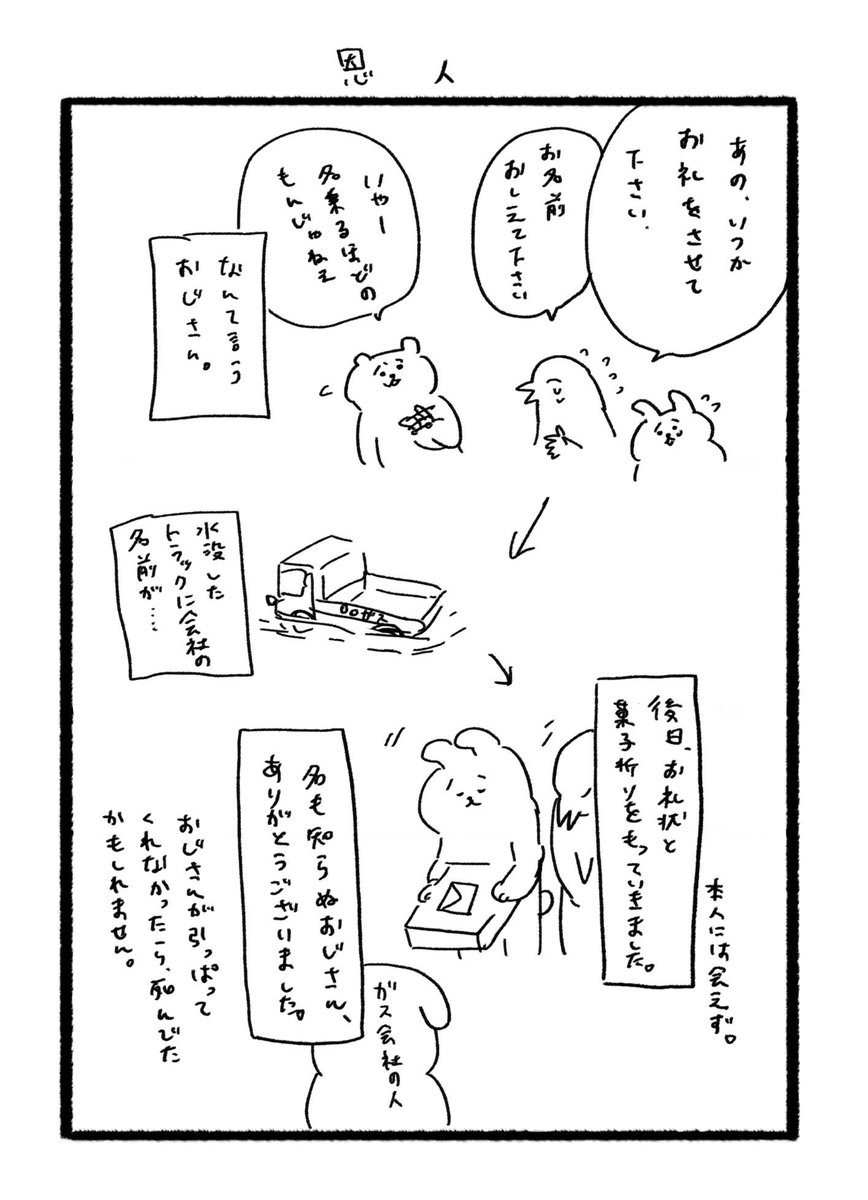 恩人
あの、いつか
お礼をさせて
下さい.
お名前
おしえて下さい
いやー
名乗るほどの
もんじゃねぇ
なんて言う
おじさん。
水没した
トラックに会社の
名前が……
〇〇ガス
後日、お礼状と
菓子折りをもっていきました。
本人には会えず。
名も知らぬおじさん、
ありがとうございました。
ガス会社の人
おじさんが引っぱって
くれなかったら、死んでた
かもしれません。